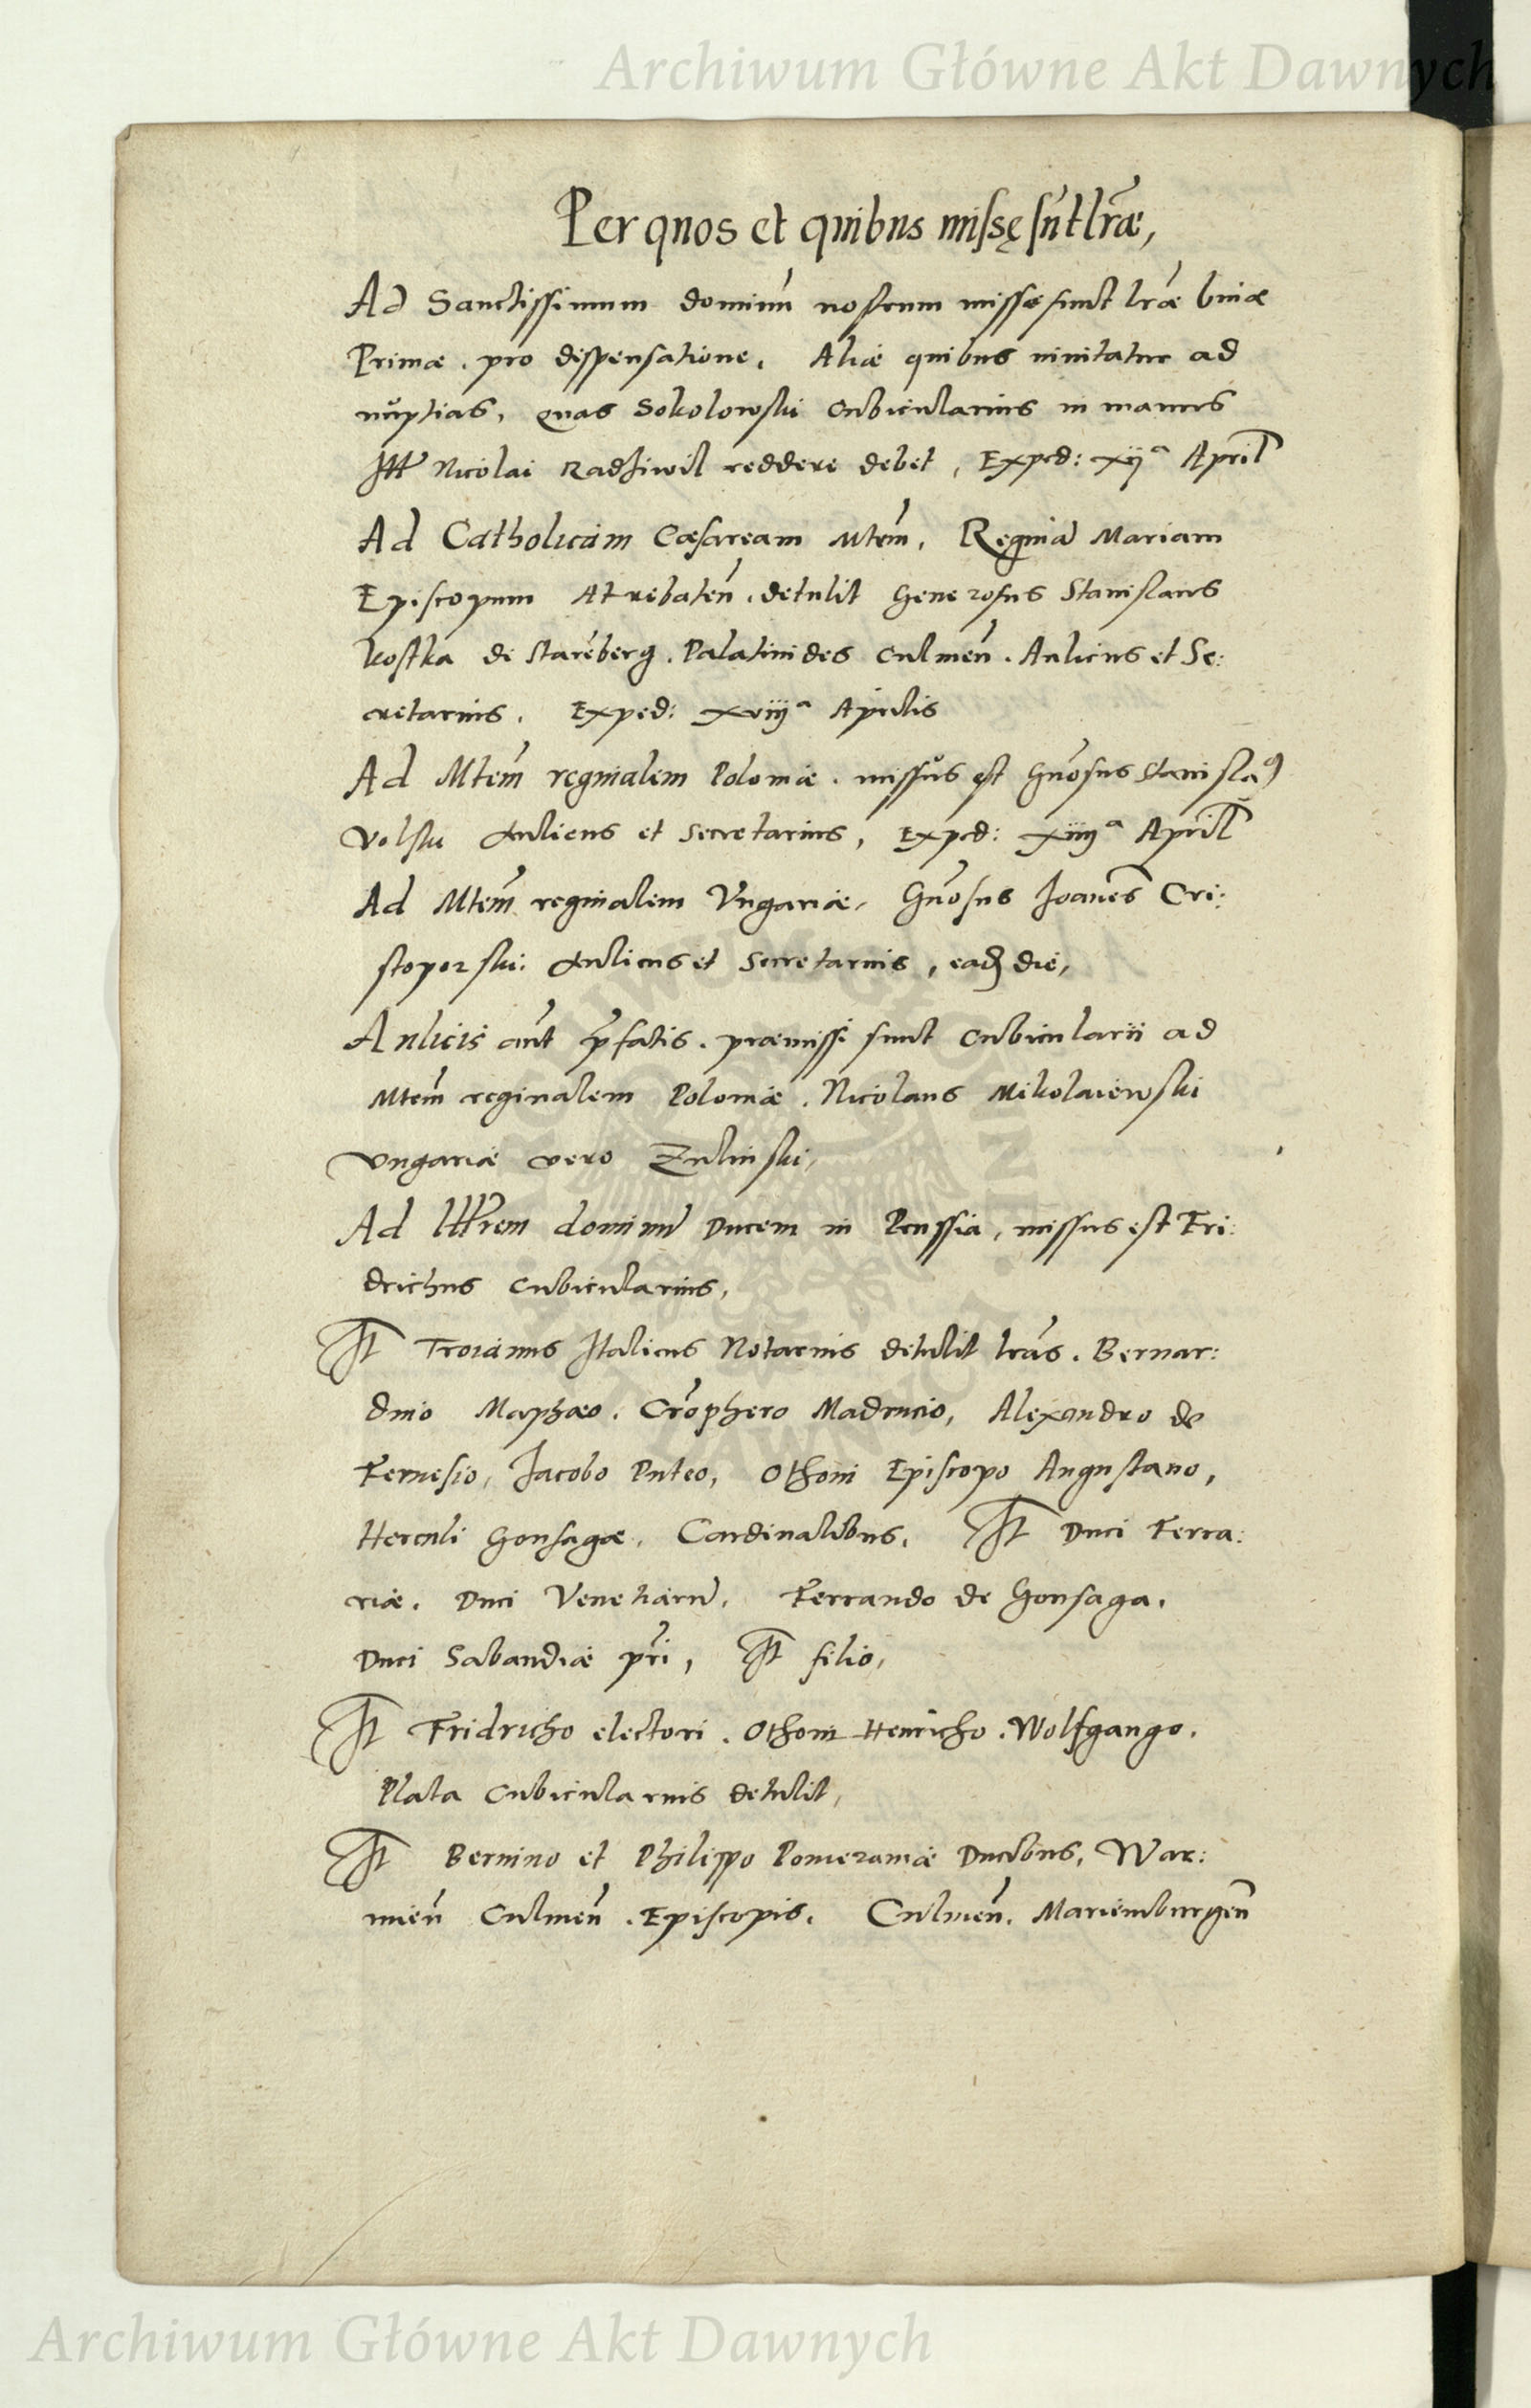 Archiwum Główne Akt Dawnych
Per quos et quibus missę sūt lr̄æ,
Ad Sanctissimum dominū nostrum missæ sunt lr̄æ binæ
Primæ. pro dispensatione. Aliæ quibus inuitatur ad
nuptias, quas Sokolowski cubicularius in manus
Illr̄ Nicolai Radziwil reddere debet, Exped: xijᵃ April
Ad Catholicam Cæsaream Mtem̄, Reginā Mariam
Episcopum Atrebateñ. detulit Generosus Stanislaus
kostka de Starēberg. Palatinides Culmeñ. Aulicus et Se:
cretarius. Exped: xviijᵃ Aprilis
Ad Mtem̄ reginalem Poloniæ. missus est Gn̄osus Stanisla⁹
Volski Aulicus et Secretarius, Exped: xiiijᵃ April
Ad Mtem̄ reginalem Vngariæ, Gn̄osus Joanes Cri:
stoporski: Aulicus et Secretarius, eadē die,
Aulicis aūt p̄fatis. præmissi sunt cubicularii ad
Mtem̄ reginalem Poloniæ. Nicolaus Mikolaiewski
Vngariæ vero Zulinski,
Ad Illr̄em dominū Ducem in Prussia, missus est Fri:
drichus cubicularius,
It Troianus Italicus Notarius detulit lr̄as. Bernar:
dino Maphæo. Crōphero Madrucio, Alexandro de
Fernesio, Jacobo Puteo, Othoni Episcopo Augustano,
Herculi Gonsagæ, Cardinalibus. It Duci Ferra:
riæ. Duci Venetiarū. Ferrando de Gonsaga.
Duci Sabaudiæ pr̄i, It filio,
It Fridricho electori. Othoni Henricho. Wolfgango.
Plata cubicularius detulit,
It Bernino et Philippo Pomeraniæ Ducibus, War:
mieñ Culmeñ. Episcopis. Culmeñ. Mariemburgeñ
Archiwum Główne Akt Dawnych